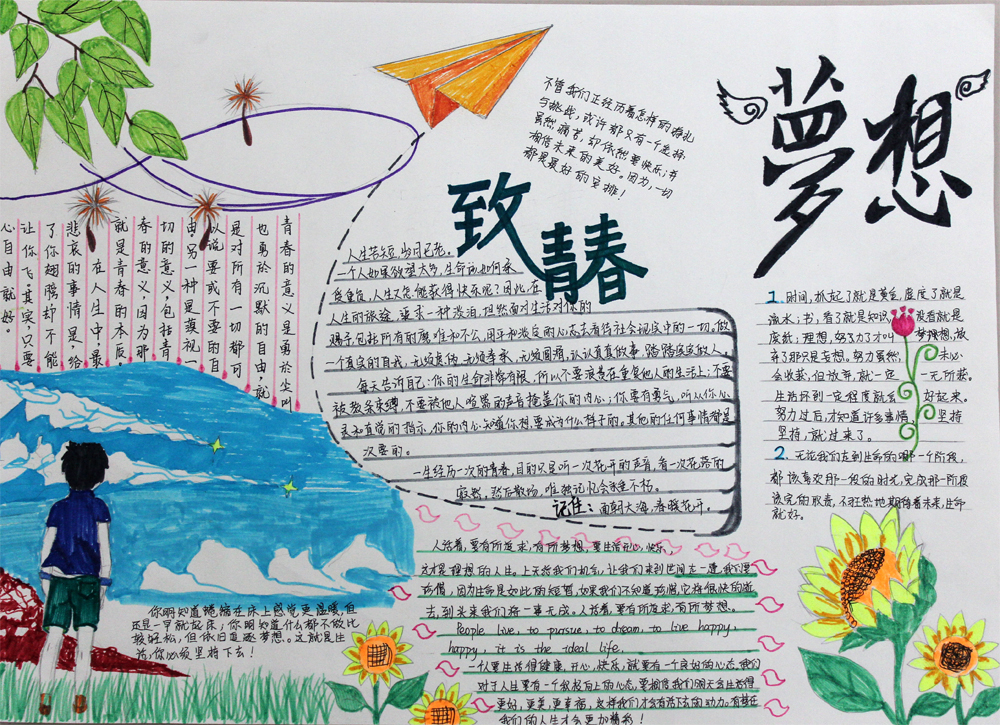 夢想
致青春
不管我们正经历着怎样的挣扎
与挑战,或许都只有一个选择:
虽然痛苦,却依然要快乐,并
相信未来的美好。因为,一切
都是最好的安排!
青春的意义是勇於尖叫
也勇於沉默的自由,就
是对所有一切都可
以说要或不要的自
由,另一种是蔑视一
切的意义,包括青
春的意义,因为那
就是青春的本质。
在人生中,最
悲哀的事情是,给
了你翅膀却不能
让你飞,其实,只要
心自由就好。
人生苦短,岁月已老。
一个人如果欲望太多,生命该如何承
受重负,人生又怎能获得快乐呢?因此,在
人生的旅途,追求一种淡泊,坦然面对生活对你的
赐予包括所有的磨难和不公,用平和淡定的心态去看待社会现实中的一切,做
一个真实的自我,无须哀伤,无须圆滑,认认真真做事,踏踏实实做人。
每天告诉自己:你的生命非常有限,所以不要浪费在重复他人的生活上;不要
被教条束缚,不要被他人喧嚣的声音掩盖你的内心;你要有勇气,听从你心
灵和直觉的指示,你的内心知道你想要成为什么样子的。其他的任何事情都是
次要的。
一生经历一次的青春,目的只是听一次花开的声音,看一次花落的
寂然,然后散场,唯独记忆会永垂不朽。
记住:面朝大海,春暖花开。
1.时间,抓起了就是黄金,虚度了就是
流水;书,看了就是知识,没看就是
废纸;理想,努力了才叫梦想,放
弃了那只是妄想。努力虽然未必
会收获,但放弃,就一定一无所获。
生活坏到一定程度就会好起来。
努力过后,才知道许多事情,坚持
坚持,就过来了。
2.无论我们走到生命的哪一个阶段,
都该喜欢那一段的时光,完成那一阶段
该完的职责,不狂热地期待着未来,生命
就好。
你明知道蜷缩在床上感觉更温暖,但
还是一早就起床;你明知道什么都不做比
较轻松,但依旧追逐梦想。这就是生
活,你必须坚持下去!
人活着,要有所追求,有所梦想,要生活开心,快乐,
这才是理想的人生。上天给我们机会,让我们来到世间走一遭,我们要
珍惜,因为生命是如此的短暂,如果我们不知道珍惜,它将很快的逝
去,到头来我们将一事无成。人活着,要有所追求,有所梦想。
People live, to pursue, to dream, to live happy,
happy, it is the ideal life.
一个人要生活得健康,开心,快乐,就要有一个良好的心态,我们
对于人生要有一个积极向上的心态,要相信我们明天会生活得
更好,更美,更幸福,这样我们才会有活下去的动力,有梦想
我们的人生才会更加精彩!